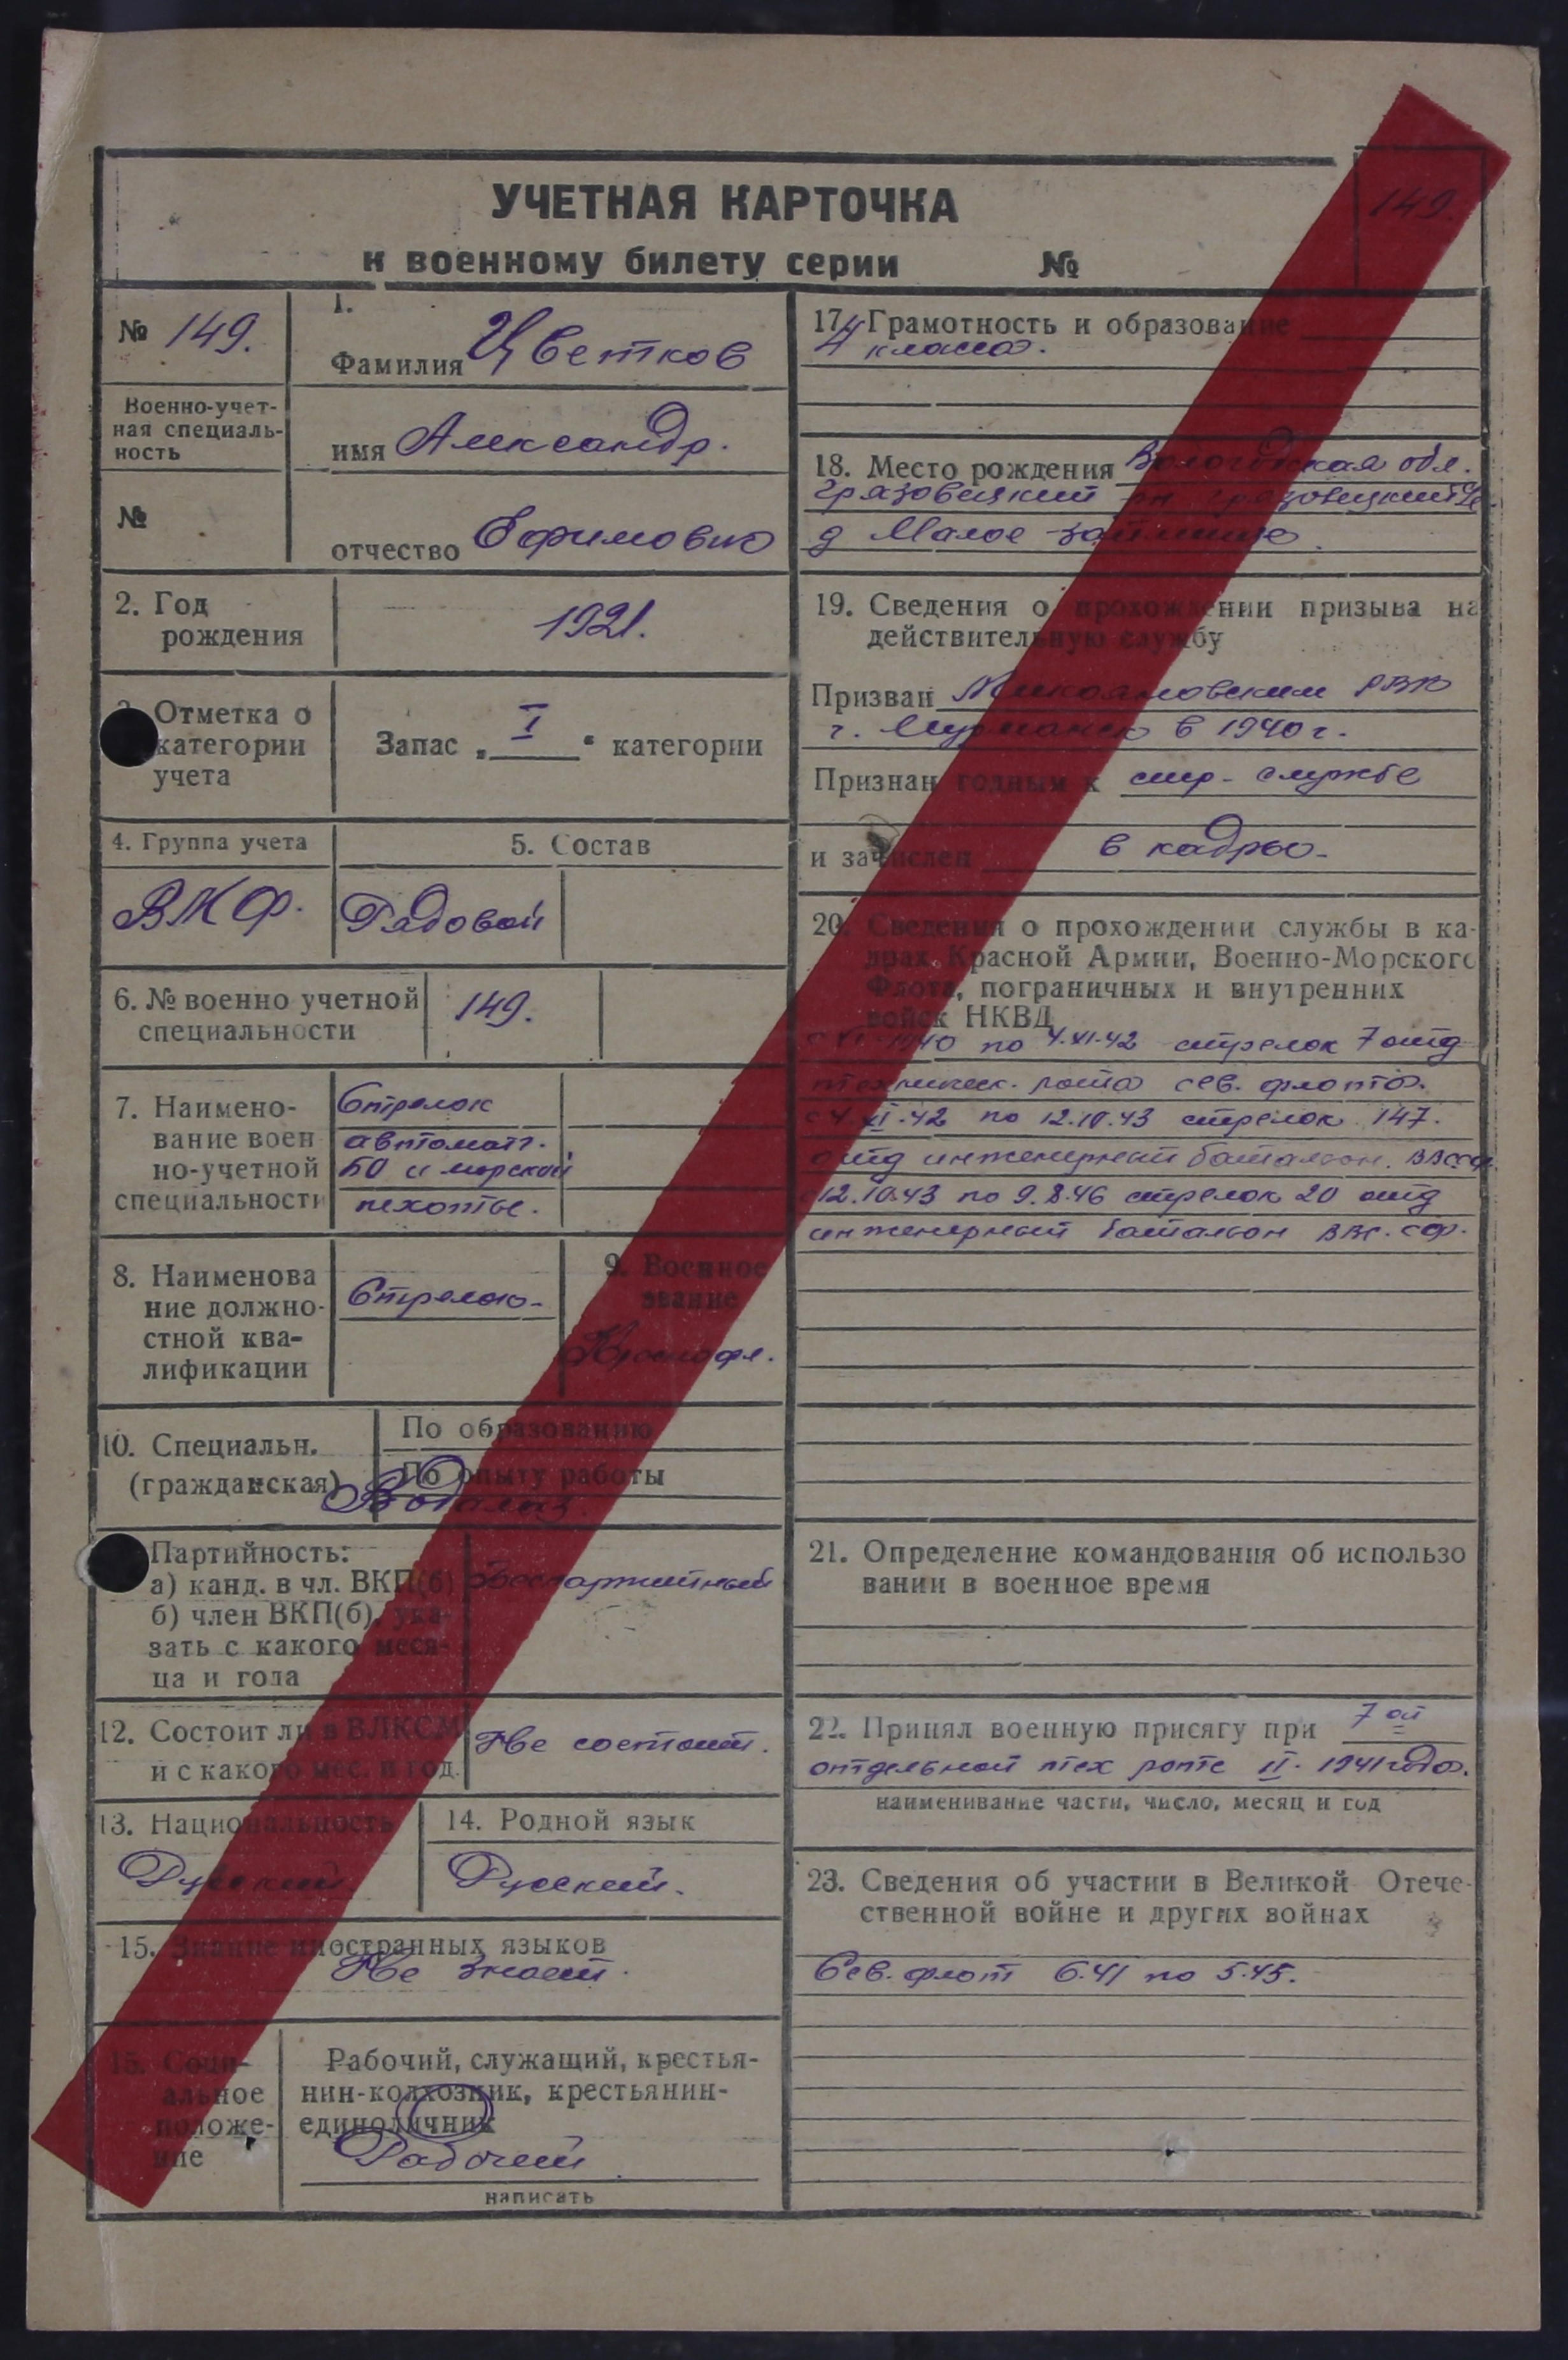 149.
УЧЕТНАЯ КАРТОЧКА
к военному билету серии №
№ 149.
Военно-учет-
ная специаль-
ность
№
1.
Фамилия Цветков
имя Александр.
отчество Ефимович
2. Год
рождения
1921.
Отметка о
категории
учета
Запас „ I “ категории
4. Группа учета
ВМФ.
5. Состав
Рядовой
6. № военно учетной
специальности
149.
7. Наимено-
вание воен
но-учетной
специальности
Стрелок
автомат.
БО и морской
пехоты.
8. Наименова
ние должно-
стной ква-
лификации
Стрелок-
9. Военное
звание
Краснофл.
10. Специальн.
(гражданская)
По образованию
По опыту работы
Партийность:
а) канд. в чл. ВКП(б)
б) член ВКП(б), ука-
зать с какого меся-
ца и года
Беспартийный
12. Состоит ли в ВЛКСМ
и с какого мес. и год.
Не состоит.
13. Национальность
Русский
14. Родной язык
Русский.
15. Знание иностранных языков
Не знает.
15. Соци-
альное
положе-
ние
Рабочий, служащий, крестья-
нин-колхозник, крестьянин-
единоличник
Рабочий
написать
17. Грамотность и образование
4 класса.
18. Место рождения Вологодская обл.
Грязовецкий рн грязовецкий
д Малое займище.
19. Сведения о прохождении призыва на
действительную службу
Призван Микояновским РВК
г. Мурманск в 1940 г.
Признан годным к стр- службе
и зачислен в кадры-
20. Сведения о прохождении службы в ка-
драх Красной Армии, Военно-Морского
Флота, пограничных и внутренних
войск НКВД
1940 по 4.XI-42 стрелок 7 отд
техническ. рота сев. флота.
с 4.XI.42 по 12.10.43 стрелок 147.
отд инженерный батальон.
12.10.43 по 9.8.46 стрелок 20 отд
инженерный батальон ВВС. сф.
21. Определение командования об использо
вании в военное время
22. Принял военную присягу при 7 ой
отдельной тех роте II. 1941 года.
наименивание части, число, месяц и год
23. Сведения об участии в Великой Отече-
ственной войне и других войнах
Сев. флот 6.41 по 5.45.